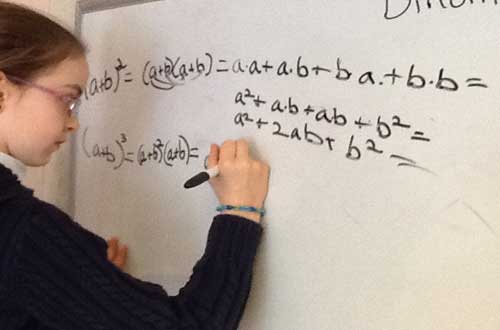 (a+b)² = (a+b)(a+b) = a·a + a·b + b a. + b·b =
a² + a·b + ab + b² =
a² + 2ab + b² =
(a+b)³ = (a+b)²(a+b) =